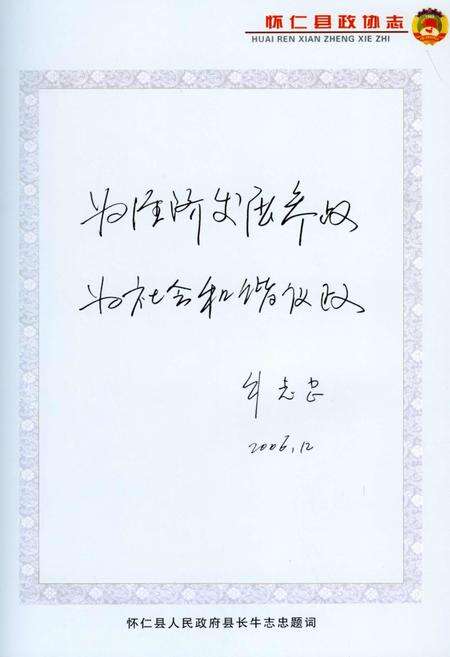 怀仁县政协志
HUAI REN XIAN ZHENG XIE ZHI
为经济发展参政
为社会和谐议政
牛志忠
2006.12
怀仁县人民政府县长牛志忠题词